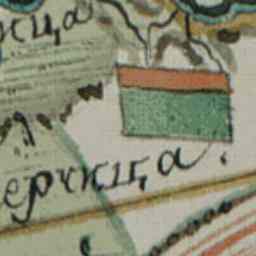 жица
ерчица.